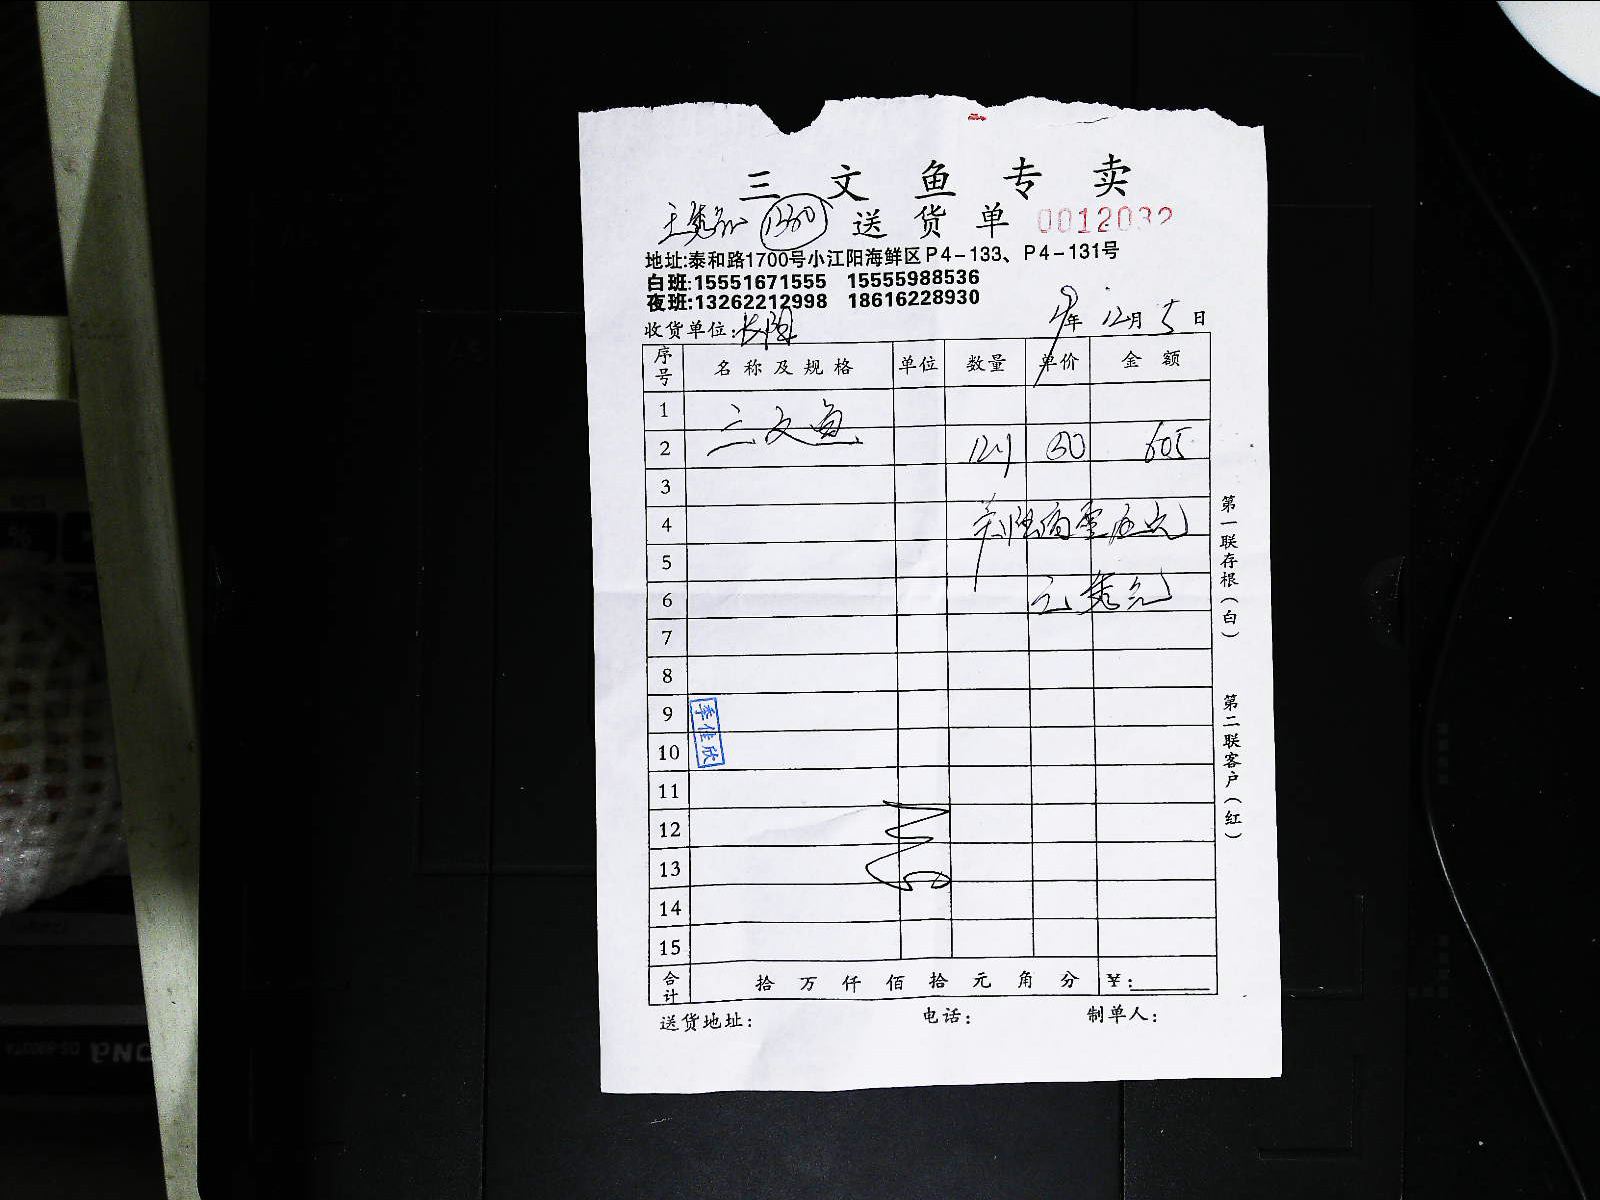 三文鱼专卖
送货单 0012032
地址:泰和路1700号小江阳海鲜区P4-133、P4-131号
白班:15551671555 15555988536
夜班:13262212998 18616228930
收货单位: 年 12月 5日
序号 名称及规格 单位 数量 单价 金额
1 三文鱼
2 605
3
4
5
6
7
8
9
10
李佳欣
11
12
13
14
15
合计 拾 万 仟 佰 拾 元 角 分 ¥:
送货地址: 电话: 制单人:
第一联存根(白)
第二联客户(红)